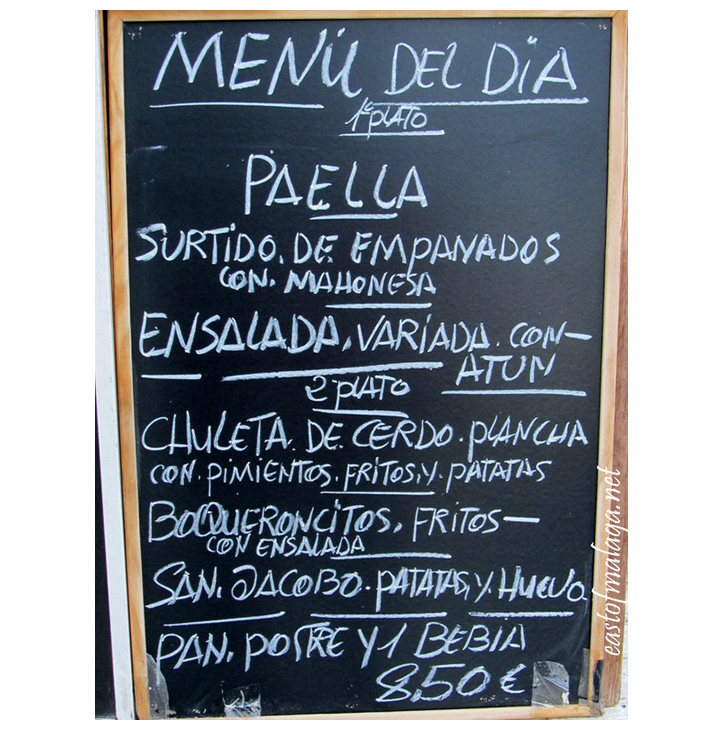 MENÚ DEL DÍA
1º PLATO
PAELLA
SURTIDO. DE EMPANADOS
CON. MAHONESA
ENSALADA, VARIADA. CON-
ATUN
2 PLATO
CHULETA. DE CERDO. PLANCHA
CON. PIMIENTOS, FRITOS, Y. PATATAS
BOQUERONCITOS, FRITOS-
CON ENSALADA
SAN. JACOBO. PATATAS, Y. HUEVO.
PAN, POSTRE Y 1 BEBIA
8,50 €
eastofmalaga.net